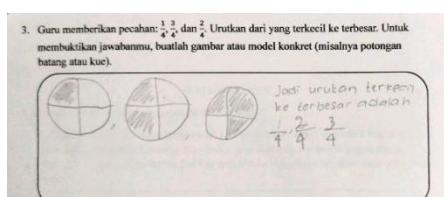 3. Guru memberikan pecahan: 1/4, 3/4, dan 2/4. Urutkan dari yang terkecil ke terbesar. Untuk
membuktikan jawabanmu, buatlah gambar atau model konkret (misalnya potongan
batang atau kue).
Jadi urutan terkecil
ke terbesar adalah
1/4, 2/4 3/4